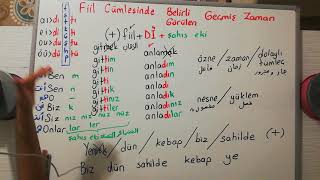 Fiil Cümlesinde Belirli
Görülen Geçmiş Zaman
(+) fiil + Dİ + şahıs eki
a ı > dı tı
e i > di ti
o u > du tu
ö ü > dü tü
f s t k ç ş h p
gitmek anlamak
gittim anladım
Sen gittin anladın
O gitti anladı
Biz k gittik anladık
Siz nız niz nuz nüz gittiniz anladınız
Onlar lar ler gittiler anladılar
özne / zaman / dolaylı tümleç
nesne / yüklem
Yemek / dün / kebap / biz / sahilde (+)
Biz dün sahilde kebap ye